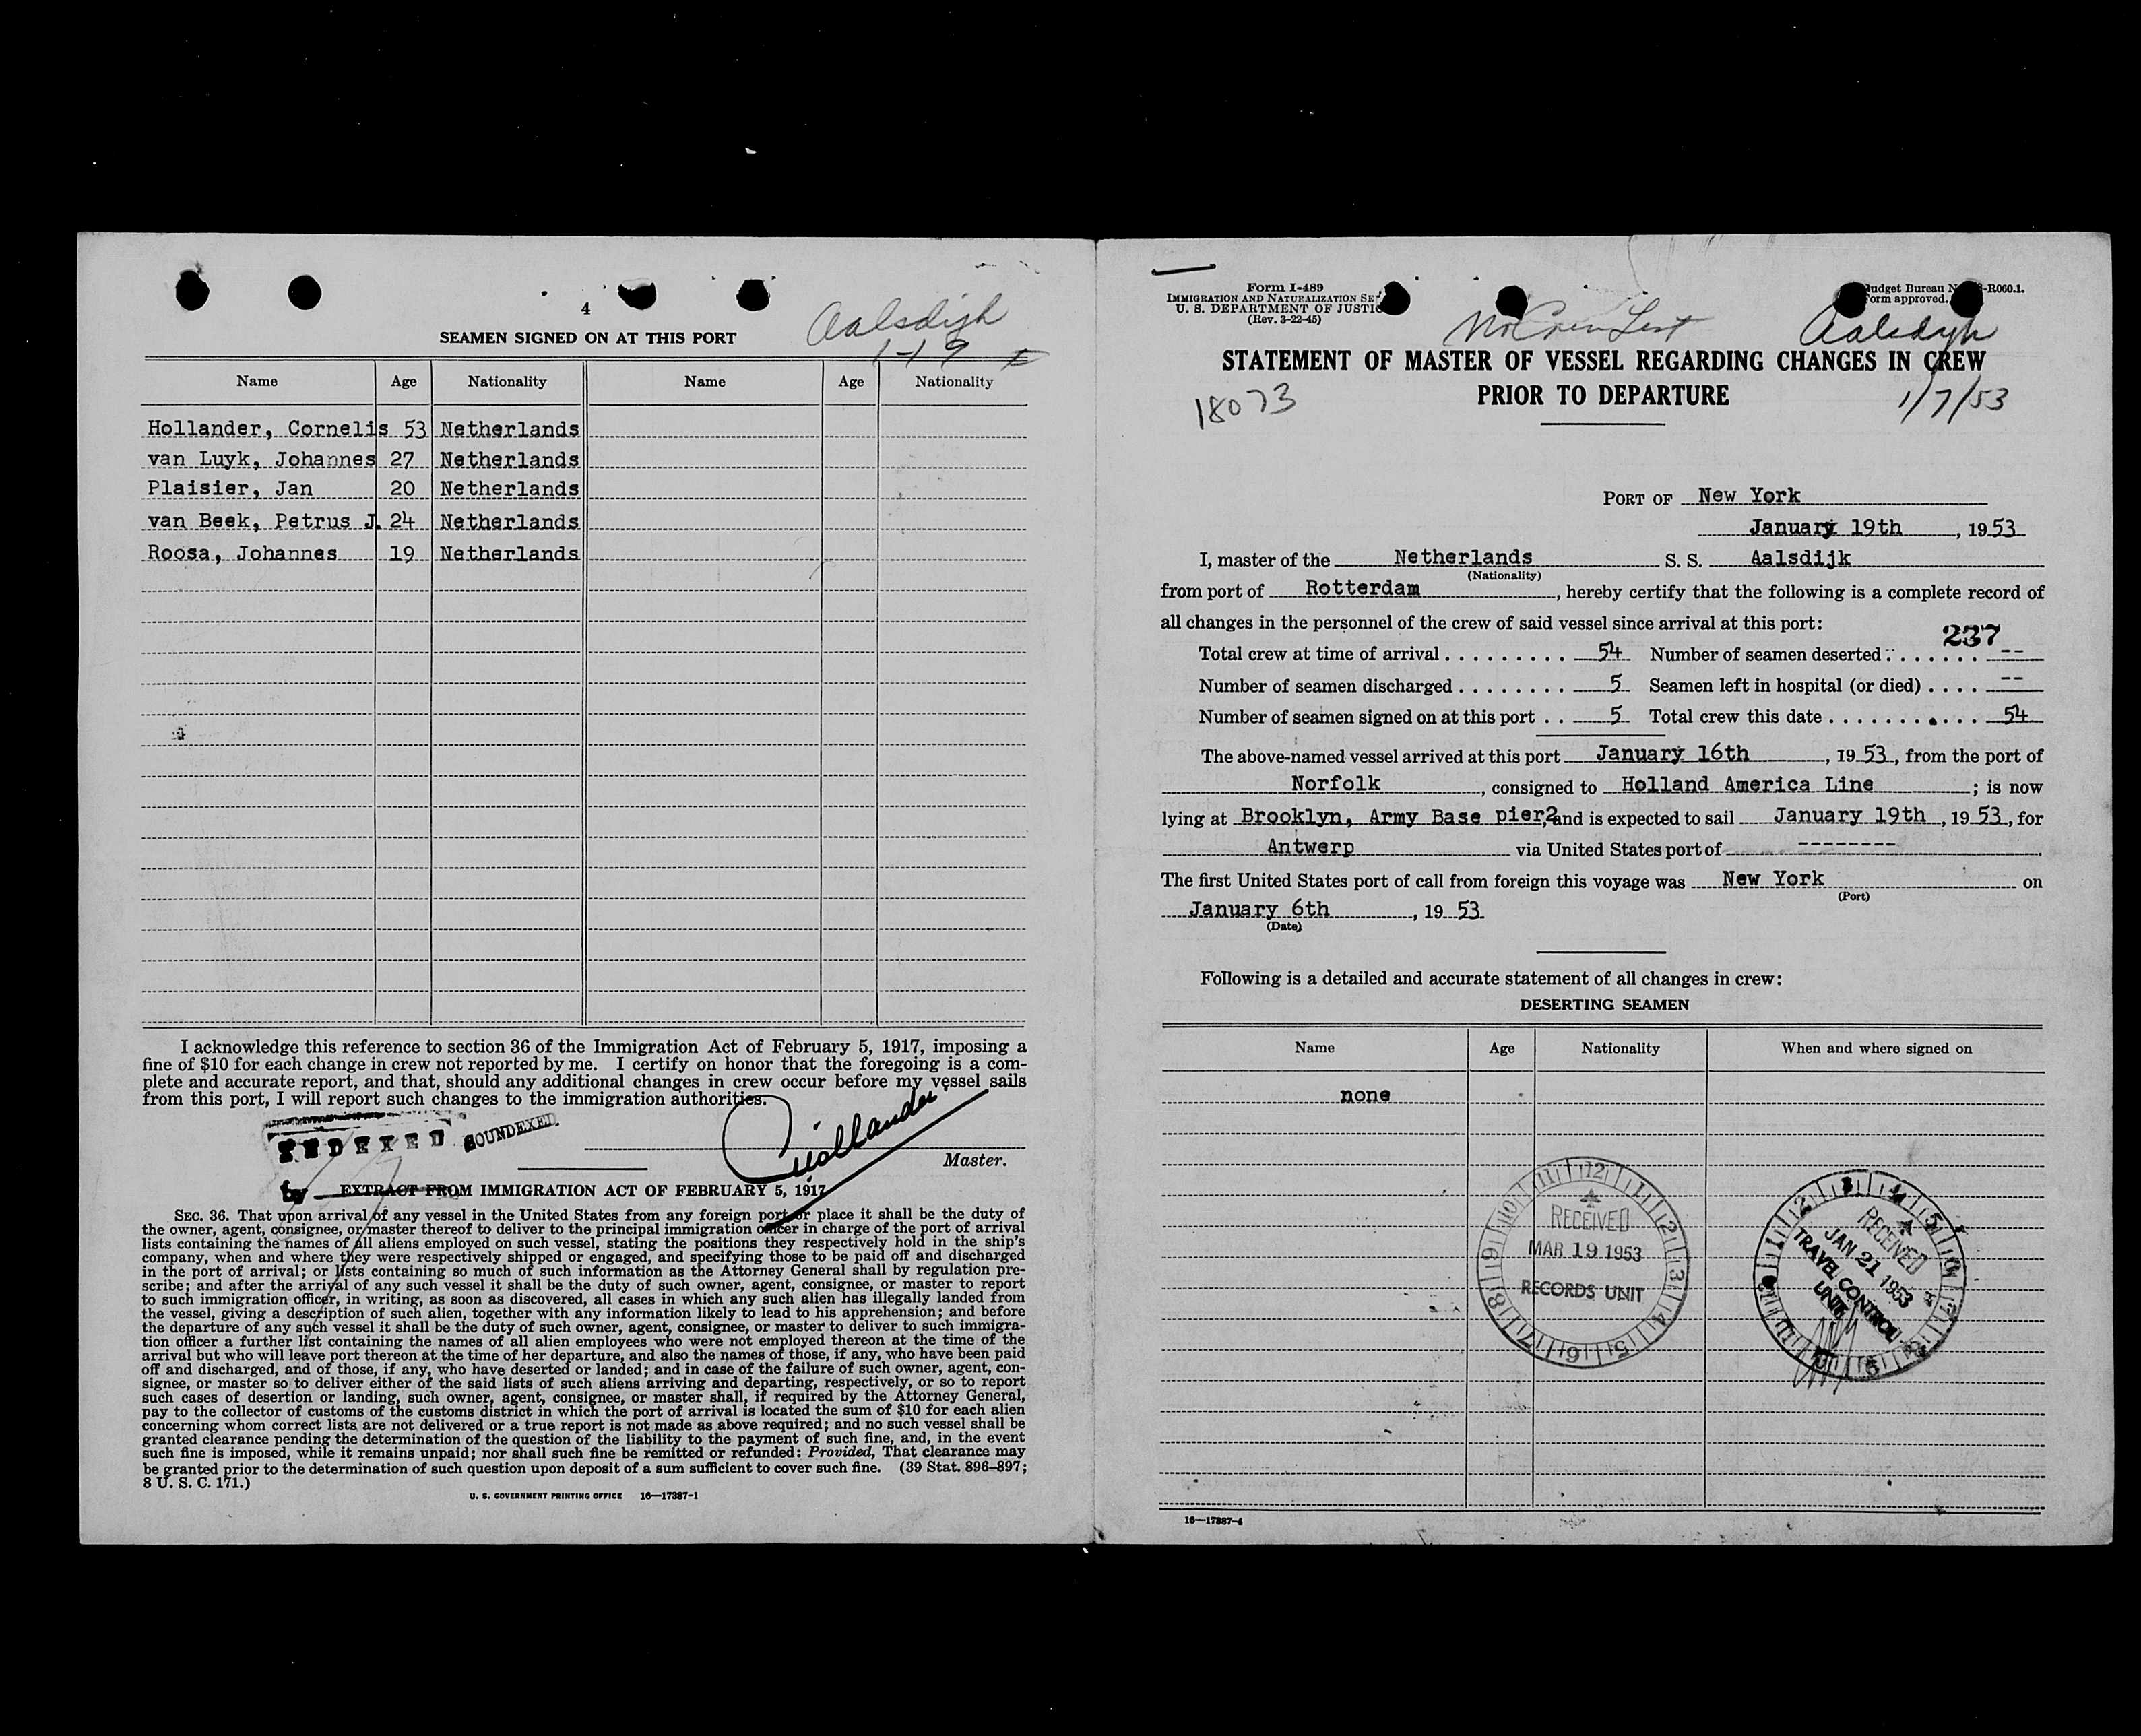 4
Aalsdijk
1-19
SEAMEN SIGNED ON AT THIS PORT
Name Age Nationality Name Age Nationality
Hollander, Cornelis 53 Netherlands
van Luyk, Johannes 27 Netherlands
Plaisier, Jan 20 Netherlands
van Beek, Petrus J. 24 Netherlands
Roosa, Johannes 19 Netherlands
I acknowledge this reference to section 36 of the Immigration Act of February 5, 1917, imposing a
fine of $10 for each change in crew not reported by me. I certify on honor that the foregoing is a com-
plete and accurate report, and that, should any additional changes in crew occur before my vessel sails
from this port, I will report such changes to the immigration authorities.
INDEXED SOUNDEXED
Hollander
Master.
by
EXTRACT FROM IMMIGRATION ACT OF FEBRUARY 5, 1917
SEC. 36. That upon arrival of any vessel in the United States from any foreign port or place it shall be the duty of
the owner, agent, consignee, or master thereof to deliver to the principal immigration officer in charge of the port of arrival
lists containing the names of all aliens employed on such vessel, stating the positions they respectively hold in the ship's
company, when and where they were respectively shipped or engaged, and specifying those to be paid off and discharged
in the port of arrival; or lists containing so much of such information as the Attorney General shall by regulation pre-
scribe; and after the arrival of any such vessel it shall be the duty of such owner, agent, consignee, or master to report
to such immigration officer, in writing, as soon as discovered, all cases in which any such alien has illegally landed from
the vessel, giving a description of such alien, together with any information likely to lead to his apprehension; and before
the departure of any such vessel it shall be the duty of such owner, agent, consignee, or master to deliver to such immigra-
tion officer a further list containing the names of all alien employees who were not employed thereon at the time of the
arrival but who will leave port thereon at the time of her departure, and also the names of those, if any, who have been paid
off and discharged, and of those, if any, who have deserted or landed; and in case of the failure of such owner, agent, con-
signee, or master so to deliver either of the said lists of such aliens arriving and departing, respectively, or so to report
such cases of desertion or landing, such owner, agent, consignee, or master shall, if required by the Attorney General,
pay to the collector of customs of the customs district in which the port of arrival is located the sum of $10 for each alien
concerning whom correct lists are not delivered or a true report is not made as above required; and no such vessel shall be
granted clearance pending the determination of the question of the liability to the payment of such fine, and, in the event
such fine is imposed, while it remains unpaid; nor shall such fine be remitted or refunded: Provided, That clearance may
be granted prior to the determination of such question upon deposit of a sum sufficient to cover such fine. (39 Stat. 896–897;
8 U. S. C. 171.)
U. S. GOVERNMENT PRINTING OFFICE 16—17387-1
Form I-489
IMMIGRATION AND NATURALIZATION SE
U. S. DEPARTMENT OF JUSTIC
(Rev. 3-22-45)
udget Bureau N -R060.1.
orm approved.
No Crew List
Aalsdyk
STATEMENT OF MASTER OF VESSEL REGARDING CHANGES IN CREW
PRIOR TO DEPARTURE
18073
1/7/53
PORT OF New York
January 19th, 1953
I, master of the Netherlands S. S. Aalsdijk
(Nationality)
from port of Rotterdam, hereby certify that the following is a complete record of
all changes in the personnel of the crew of said vessel since arrival at this port:
237
Total crew at time of arrival 54 Number of seamen deserted --
Number of seamen discharged 5 Seamen left in hospital (or died) --
Number of seamen signed on at this port 5 Total crew this date 54
The above-named vessel arrived at this port January 16th, 1953, from the port of
Norfolk, consigned to Holland America Line; is now
lying at Brooklyn, Army Base pier2, and is expected to sail January 19th, 1953, for
Antwerp via United States port of --------
The first United States port of call from foreign this voyage was New York on
(Port)
January 6th, 1953
(Date)
Following is a detailed and accurate statement of all changes in crew:
DESERTING SEAMEN
Name Age Nationality When and where signed on
none
RECEIVED
MAR 19 1953
RECORDS UNIT
12 1 2 3 4 5 6 7 8 9 10 11
RECEIVED
JAN 21 1953
TRAVEL CONTROL
UNIT
16—17387-4